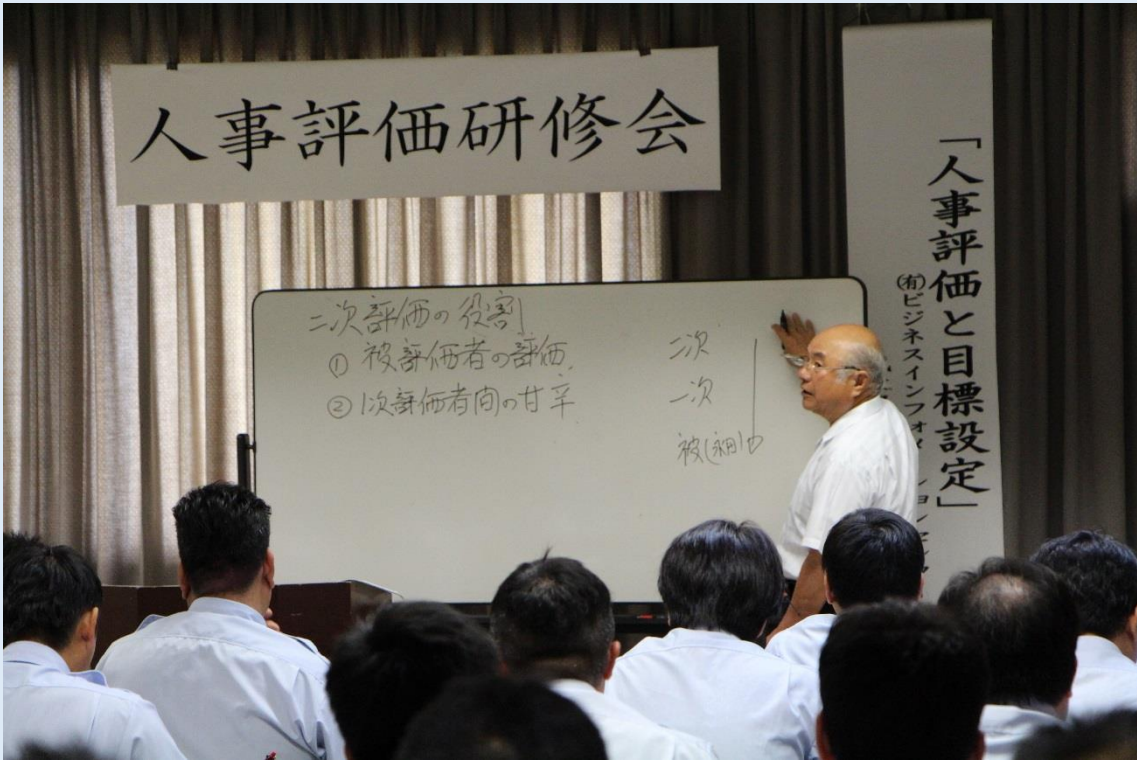 人事評価研修会
「人事評価と目標設定」
㈲ビジネスインフォメーションセンタ
二次評価の役割
① 被評価者の評価
② 1次評価者間の甘辛
二次
一次
被